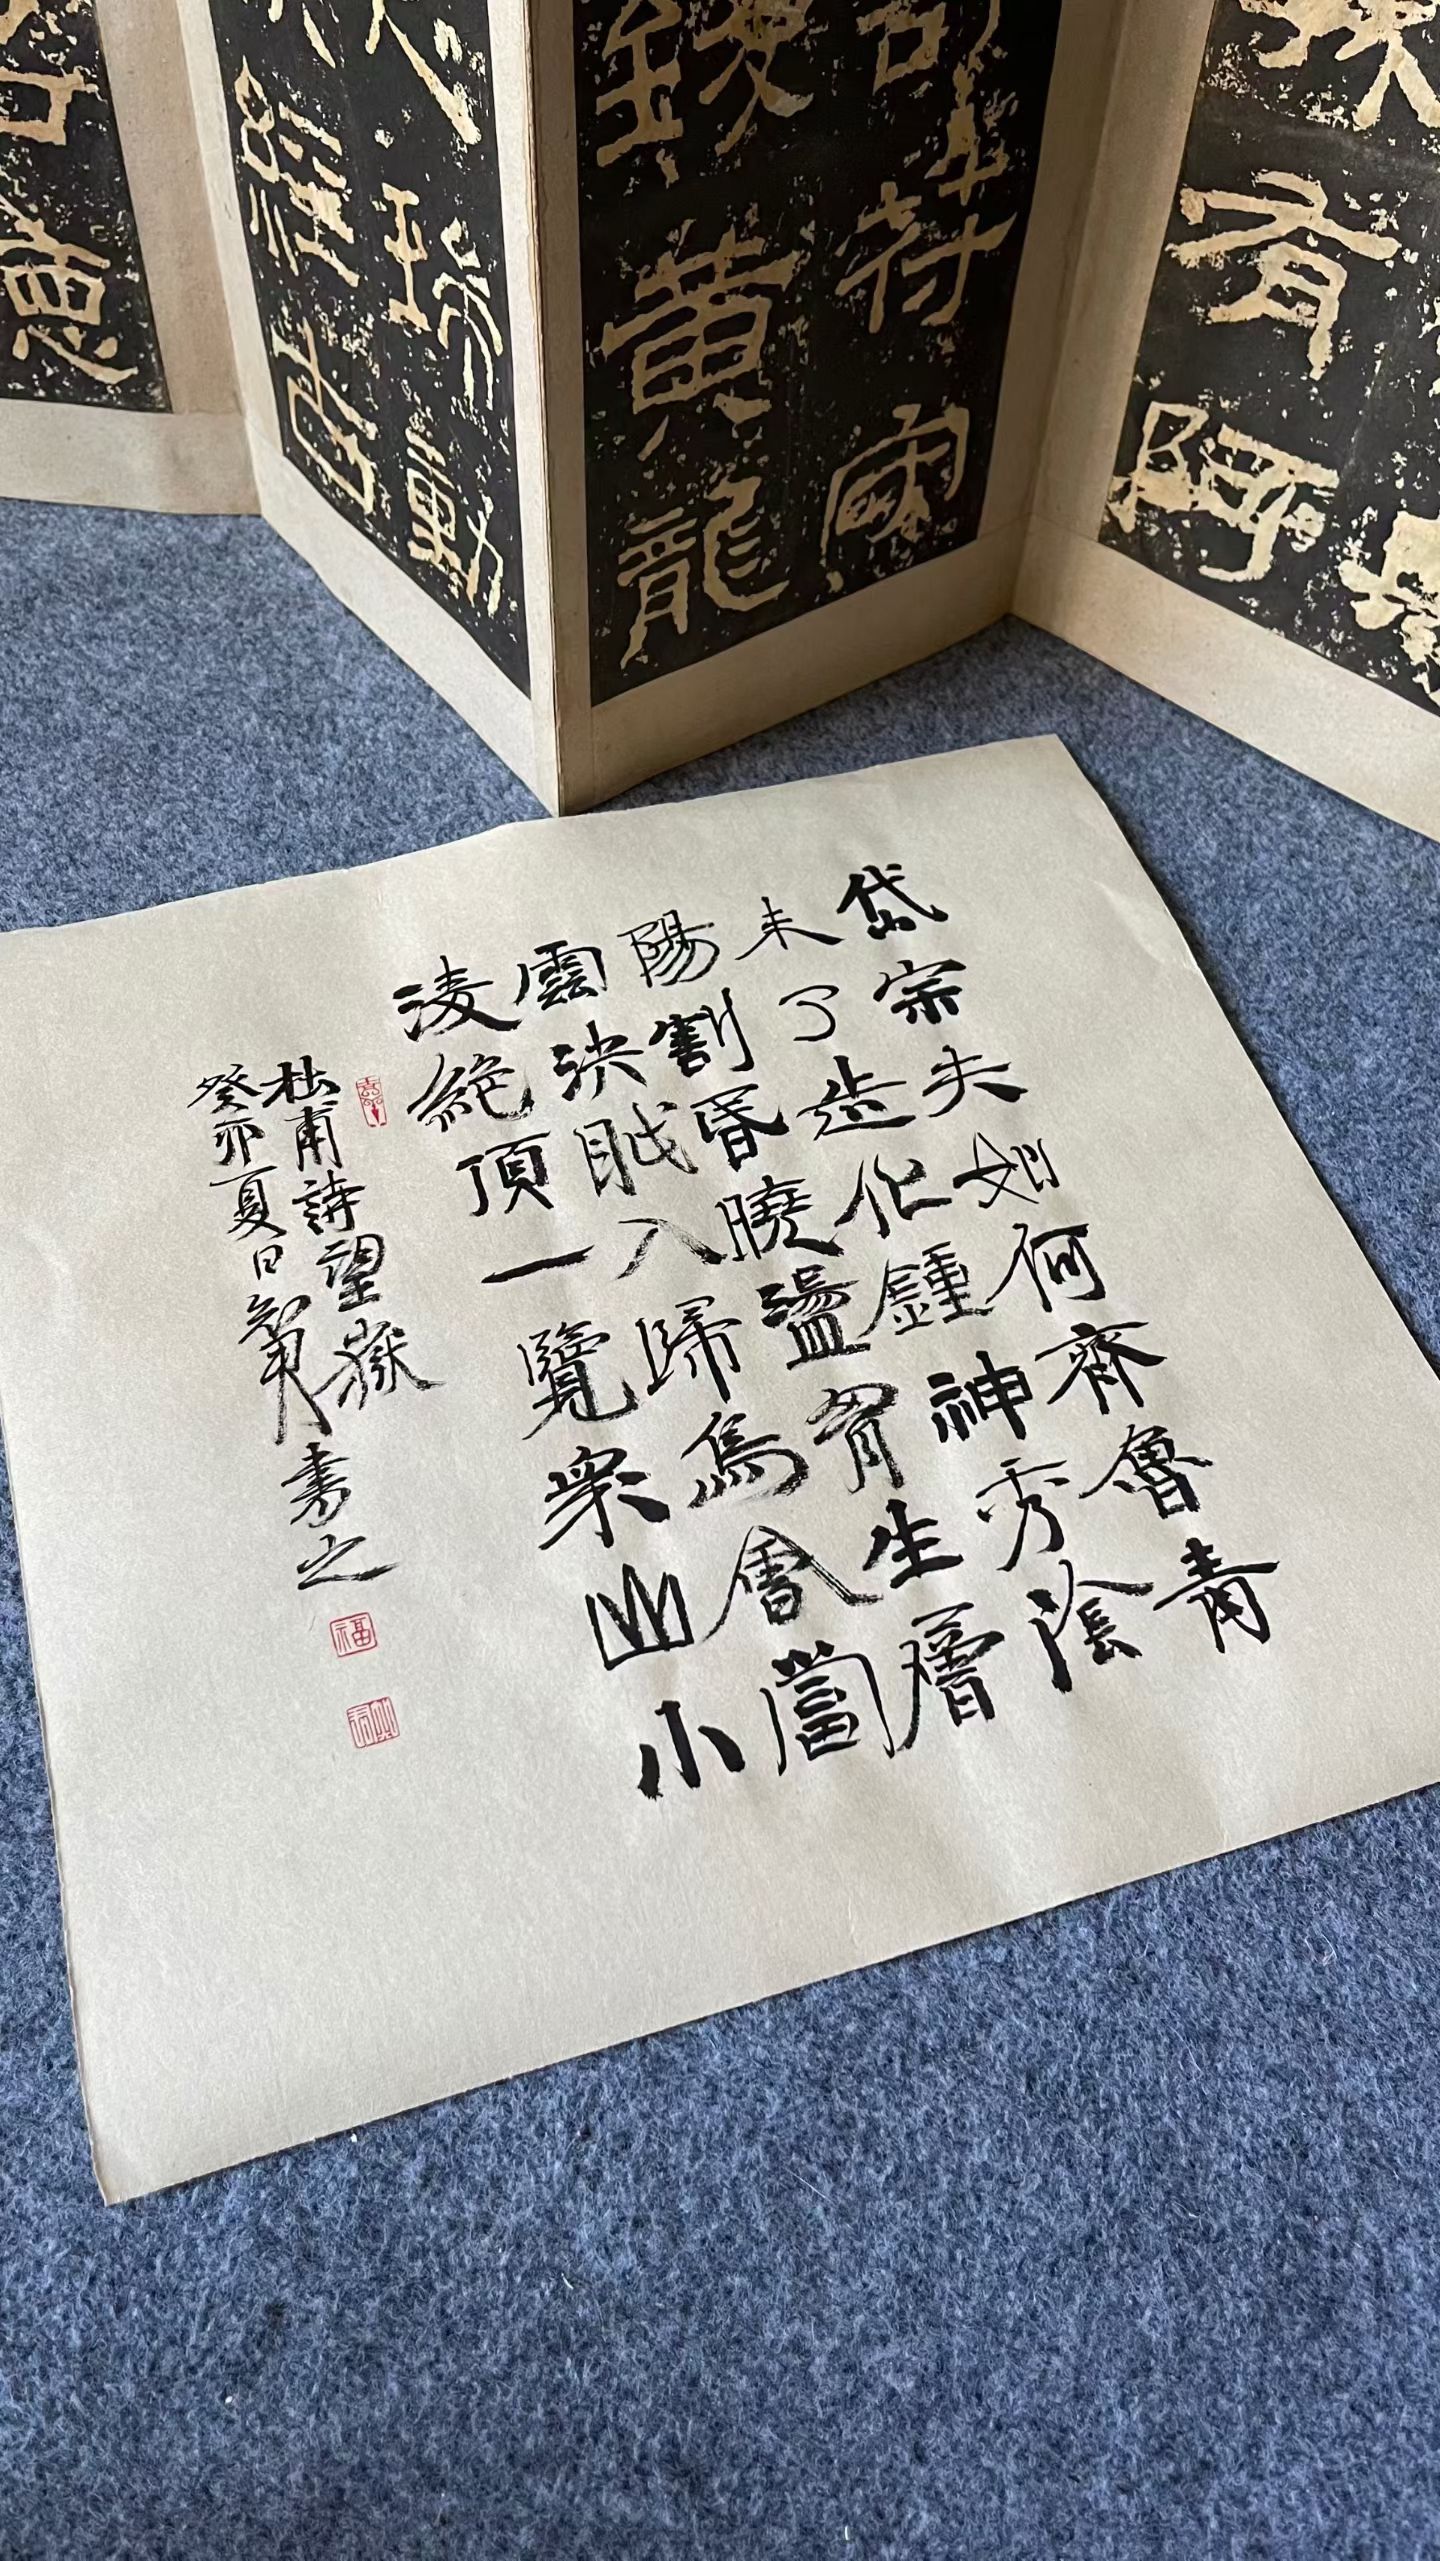 有阿
黄龍
瑞動
德
岱宗夫如何齊魯青
未了造化鍾神秀陰
陽割昏曉盪胷生層
雲決眦入歸鳥會當
凌絶頂一覽衆山小
杜甫詩望嶽
癸卯夏日
書之
福